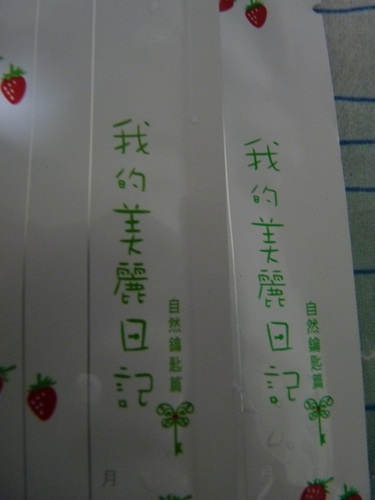 我的美麗日記
自然鑰匙篇
月
我的美麗日記
自然鑰匙篇